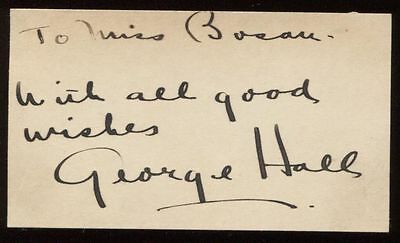 To Miss Bosan.
With all good
wishes
George Hall